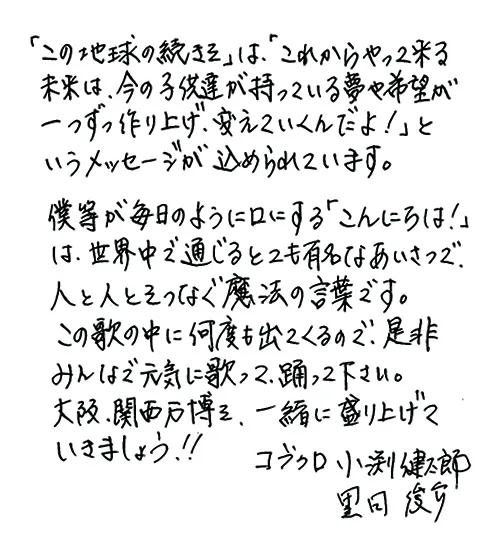 「この地球の続きを」は、「これからやって来る
未来は、今の子供達が持っている夢や希望が
一つずつ作り上げ、変えていくんだよ！」と
いうメッセージが込められています。
僕等が毎日のように口にする「こんにちは！」
は、世界中で通じるとても有名なあいさつで、
人と人とをつなぐ魔法の言葉です。
この歌の中に何度も出てくるので、是非
みんなで元気に歌って、踊って下さい。
大阪、関西万博を、一緒に盛り上げて
いきましょう!!
コブクロ 小渕健太郎
黒田 俊介